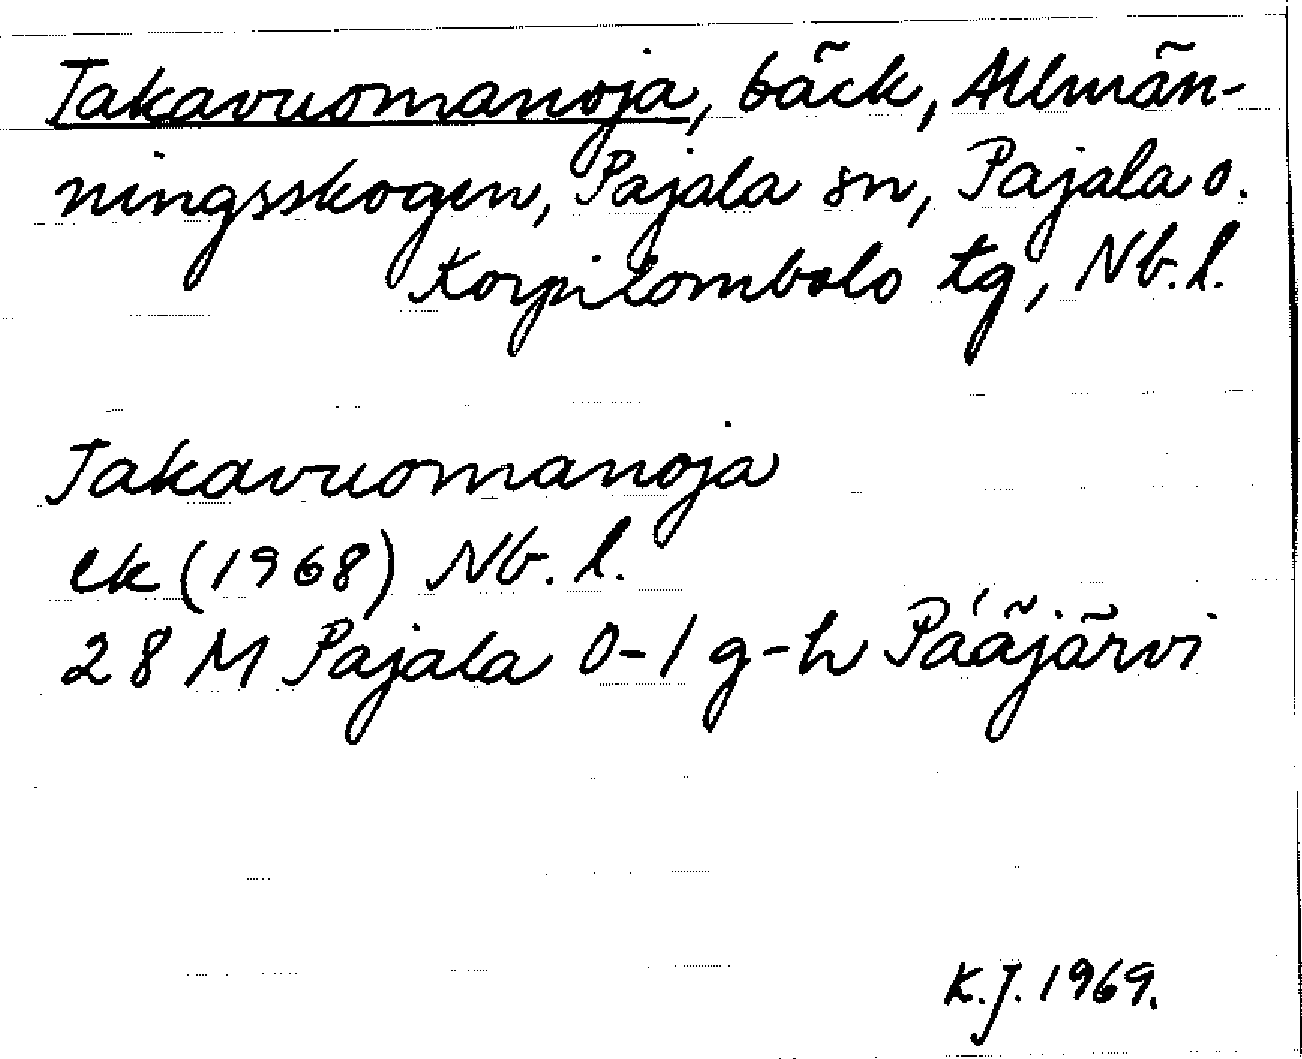 Takavuomanoja, bäck, Allmän-
ningsskogen, Pajala sn, Pajala o.
Korpilombolo tg, Nb. l.
Takavuomanoja
ek (1968) Nb. l.
28 M Pajala 0-1 g-h Pääjärvi
K.J. 1969.